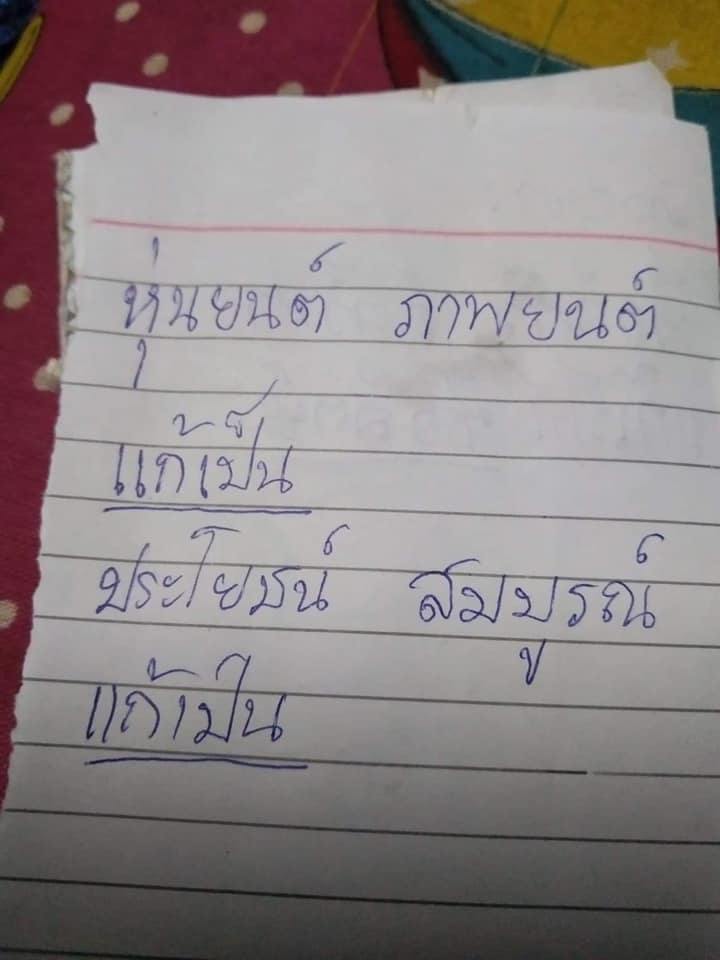 หุ่นยนต์ ภาพยนต์
แก้เป็น
ประโยชน์ สมบูรณ์
แก้เป็น